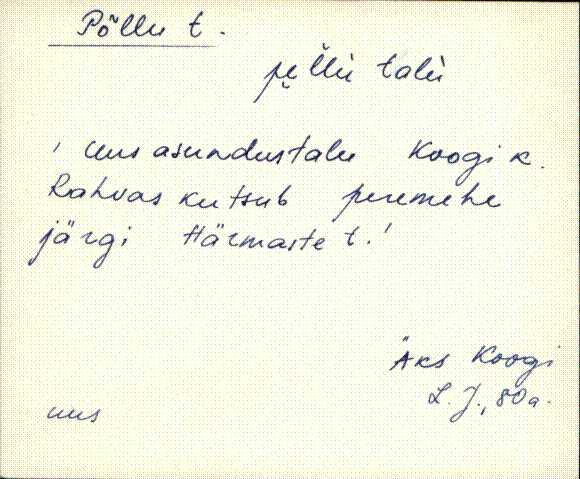 Põllu t.
pe̮ĺĺu talu
' Uus asundustalu Koogi k.
Rahvas kutsub peremehe
järgi Härmaste t.'
Äks Koogi
L. J., 80 a.
uus